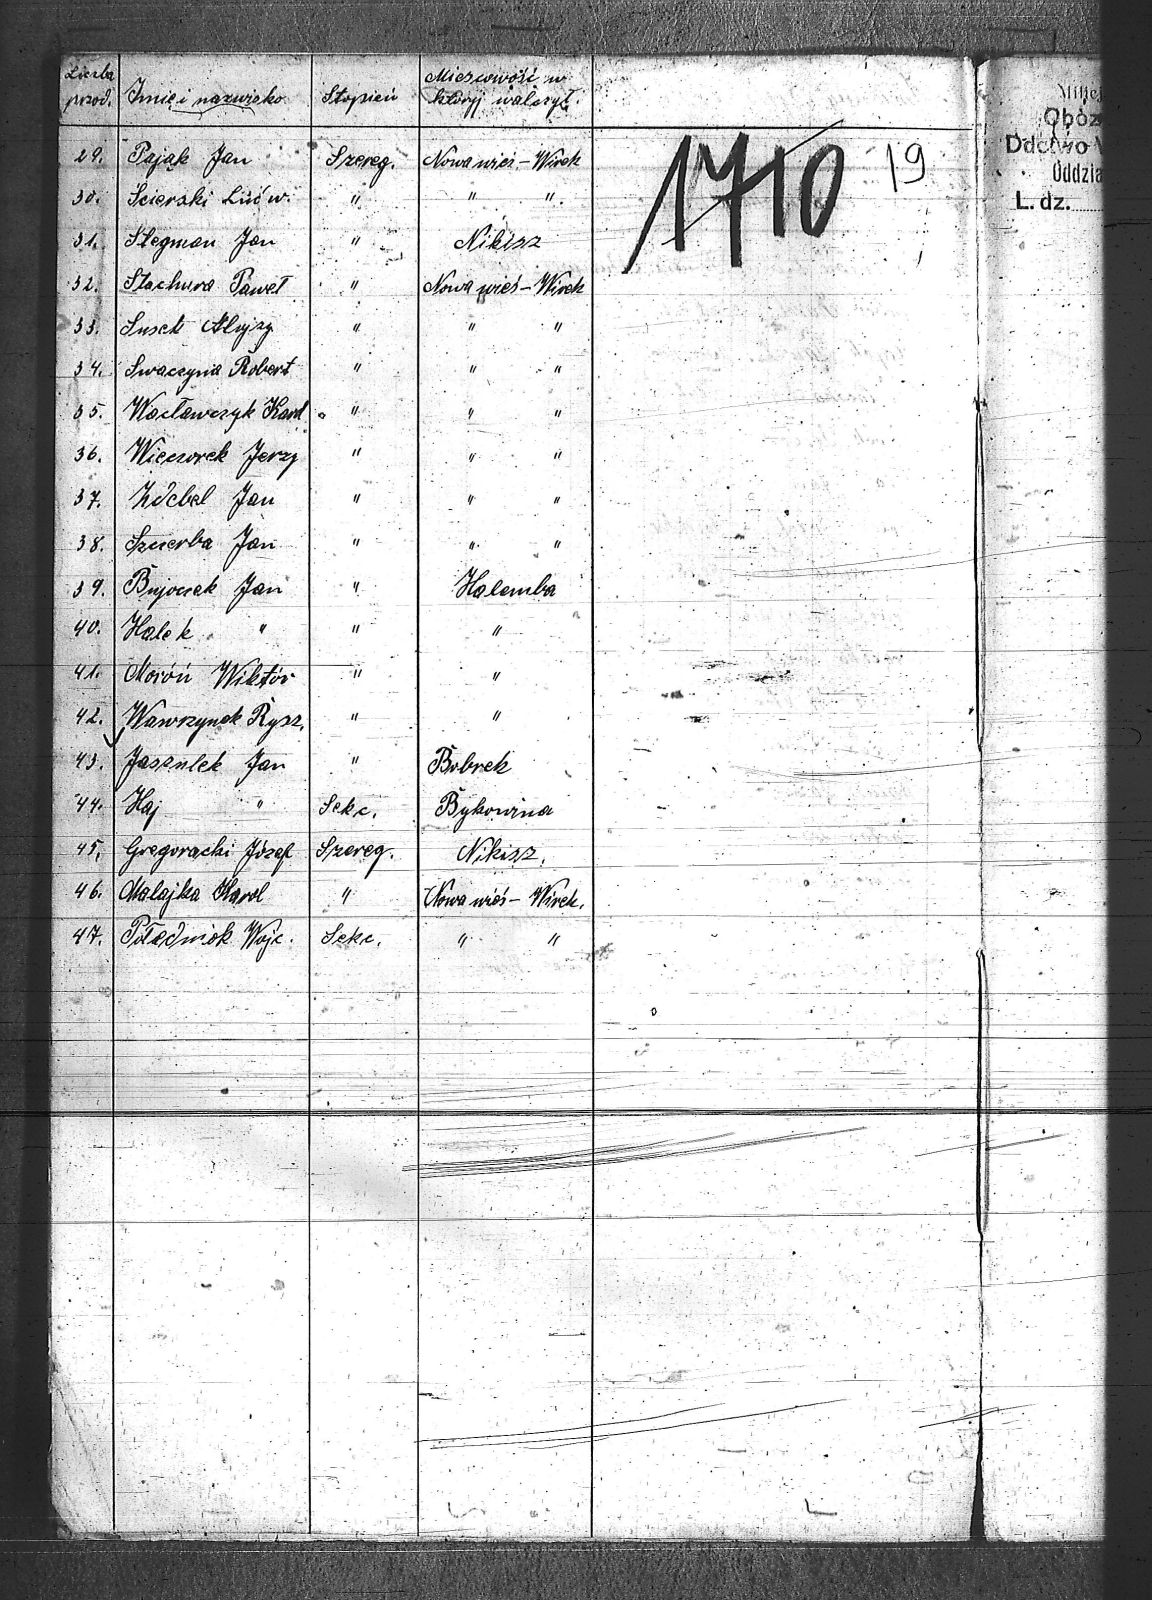 Liczba porząd. Imię i nazwisko Stopień Miejscowość w której walczył.
1710 19
29. Pająk Jan Szereg. Nowa wieś - Wirek
30. Scierski Ludw. " " ".
31. Stegman Jan " Nikisz
32. Stachura Paweł " Nowa wieś - Wirek
33. Susek Alojzy " " "
34. Swaczyna Robert " " "
35. Wacławczyk Karol " " "
36. Wieczorek Jerzy " " "
37. Jan " " "
38. Szczerba Jan " " "
39. Bujoczek Jan " Halemba
40. Halek " " "
41. Moroń Wiktor " "
42. Wawrzynek Rysz. " "
43. Jaszulek Jan " Bobrek
44. Haj " Sekc. Bykowina
45. Gregoracki Józef Szereg. Nikisz.
46. Malajka Karol " Nowa wieś - Wirek.
47. Wojc. Sekc. " "
Obóz
Ddctwo
Oddzia
L. dz.